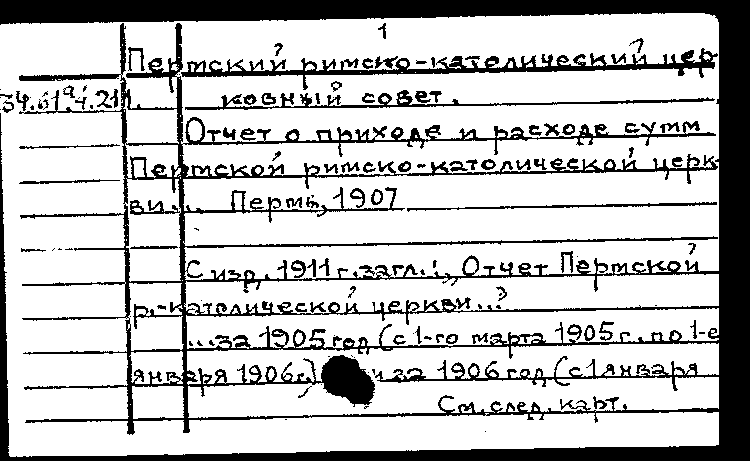 1
Пермский римско-католический цер-
34.61.4.211. ковный совет.
Отчет о приходе и расходе сумм
Пермской римско-католической церк-
ви... Пермь, 1907
С изд. 1911 г. загл.: „Отчет Пермской
р.-католической церкви..."
...за 1905 год (с 1-го марта 1905 г. по 1-е
января 1906 г.) и за 1906 год (с 1 января
См. след. карт.